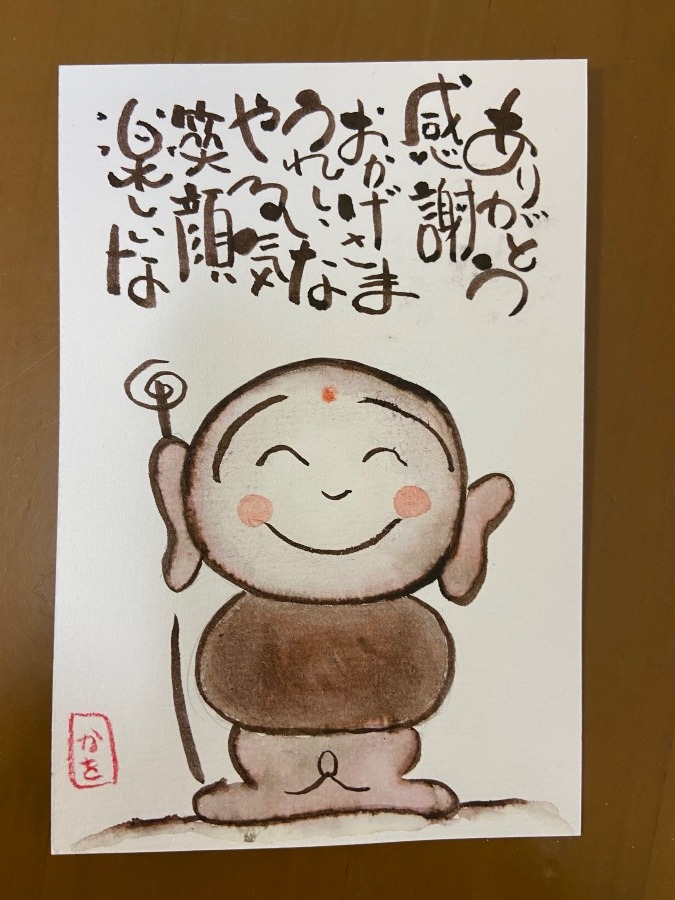 ありがとう
感謝
おかげさま
うれしいな
やる気
笑顔
楽しいな
かを